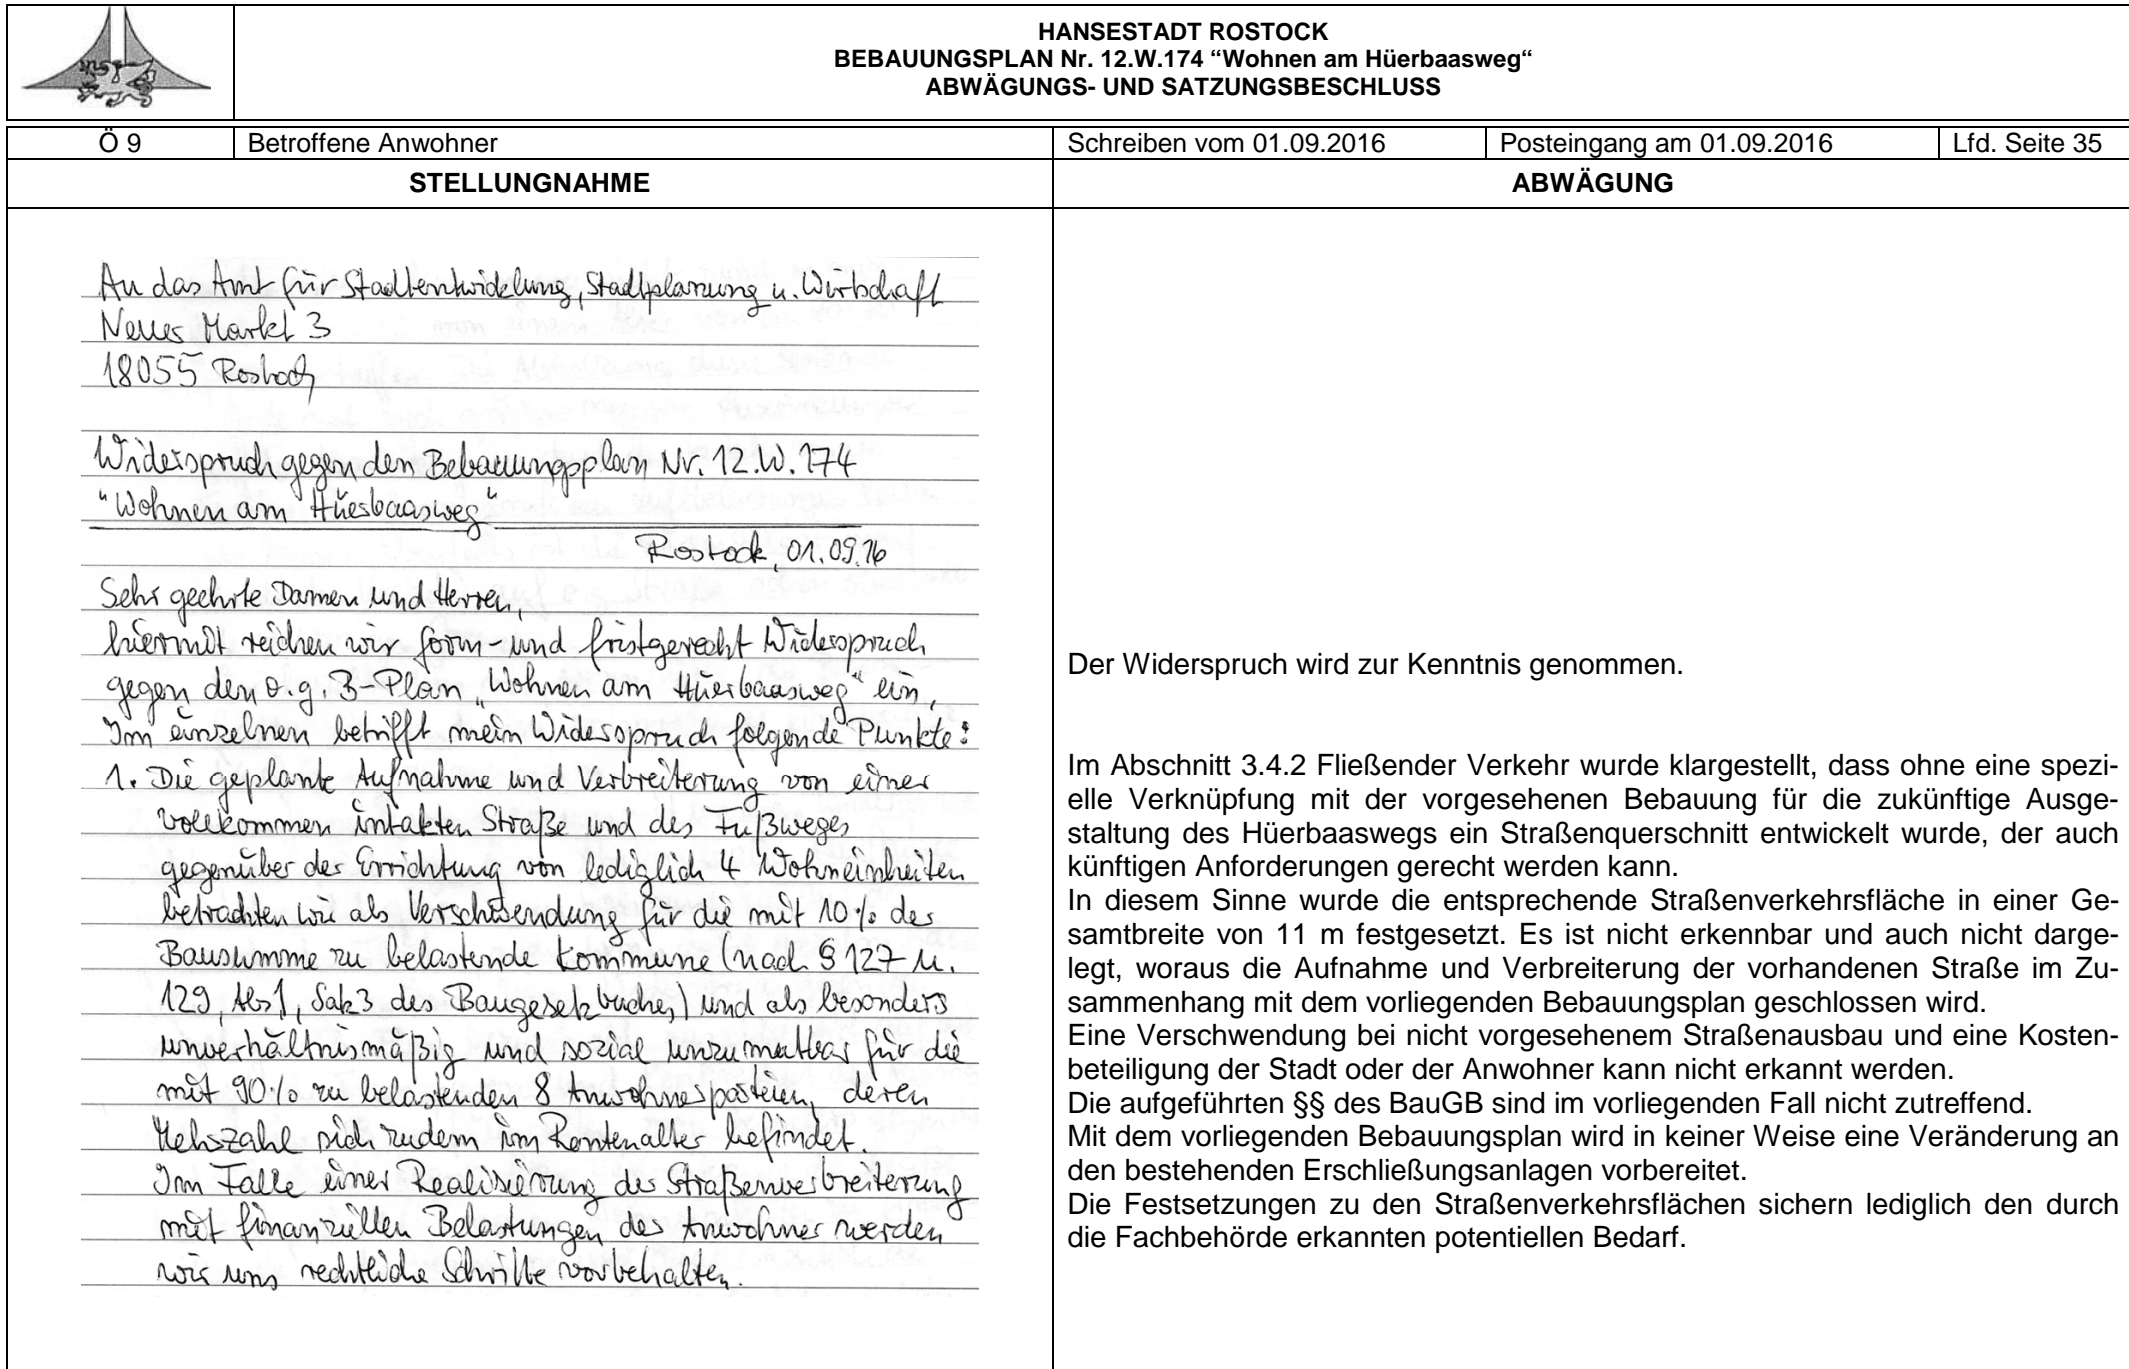 HANSESTADT ROSTOCK
BEBAUUNGSPLAN Nr. 12.W.174 “Wohnen am Hüerbaasweg“
ABWÄGUNGS- UND SATZUNGSBESCHLUSS
Ö 9 Betroffene Anwohner Schreiben vom 01.09.2016 Posteingang am 01.09.2016 Lfd. Seite 35
STELLUNGNAHME ABWÄGUNG
An das Amt für Stadtentwicklung, Stadtplanung u. Wirtschaft
Neuer Markt 3
18055 Rostock
Widerspruch gegen den Bebauungsplan Nr. 12.W.174
"Wohnen am Hüerbaasweg"
Rostock, 01.09.16
Sehr geehrte Damen und Herren,
hiermit reichen wir form- und fristgerecht Widerspruch
gegen den o.g. B-Plan „Wohnen am Hüerbaasweg“ ein,
Im einzelnen betrifft mein Widerspruch folgende Punkte:
1. Die geplante Aufnahme und Verbreiterung von einer
vollkommen intakten Straße und des Fußweges
gegenüber der Errichtung von lediglich 4 Wohneinheiten
betrachten wir als Verschwendung für die mit 10% der
Bausumme zu belastende Kommune (nach § 127 u.
129, Abs1, Satz3 des Baugesetzbuches) und als besonders
unverhältnismäßig und sozial unzumutbar für die
mit 90% zu belastenden 8 Anwohnerparteien, deren
Mehrzahl sich zudem im Rentenalter befindet.
Im Falle einer Realisierung der Straßenverbreiterung
mit finanziellen Belastungen der Anwohner werden
wir uns rechtliche Schritte vorbehalten.
Der Widerspruch wird zur Kenntnis genommen.
Im Abschnitt 3.4.2 Fließender Verkehr wurde klargestellt, dass ohne eine spezi-
elle Verknüpfung mit der vorgesehenen Bebauung für die zukünftige Ausge-
staltung des Hüerbaaswegs ein Straßenquerschnitt entwickelt wurde, der auch
künftigen Anforderungen gerecht werden kann.
In diesem Sinne wurde die entsprechende Straßenverkehrsfläche in einer Ge-
samtbreite von 11 m festgesetzt. Es ist nicht erkennbar und auch nicht darge-
legt, woraus die Aufnahme und Verbreiterung der vorhandenen Straße im Zu-
sammenhang mit dem vorliegenden Bebauungsplan geschlossen wird.
Eine Verschwendung bei nicht vorgesehenem Straßenausbau und eine Kosten-
beteiligung der Stadt oder der Anwohner kann nicht erkannt werden.
Die aufgeführten §§ des BauGB sind im vorliegenden Fall nicht zutreffend.
Mit dem vorliegenden Bebauungsplan wird in keiner Weise eine Veränderung an
den bestehenden Erschließungsanlagen vorbereitet.
Die Festsetzungen zu den Straßenverkehrsflächen sichern lediglich den durch
die Fachbehörde erkannten potentiellen Bedarf.